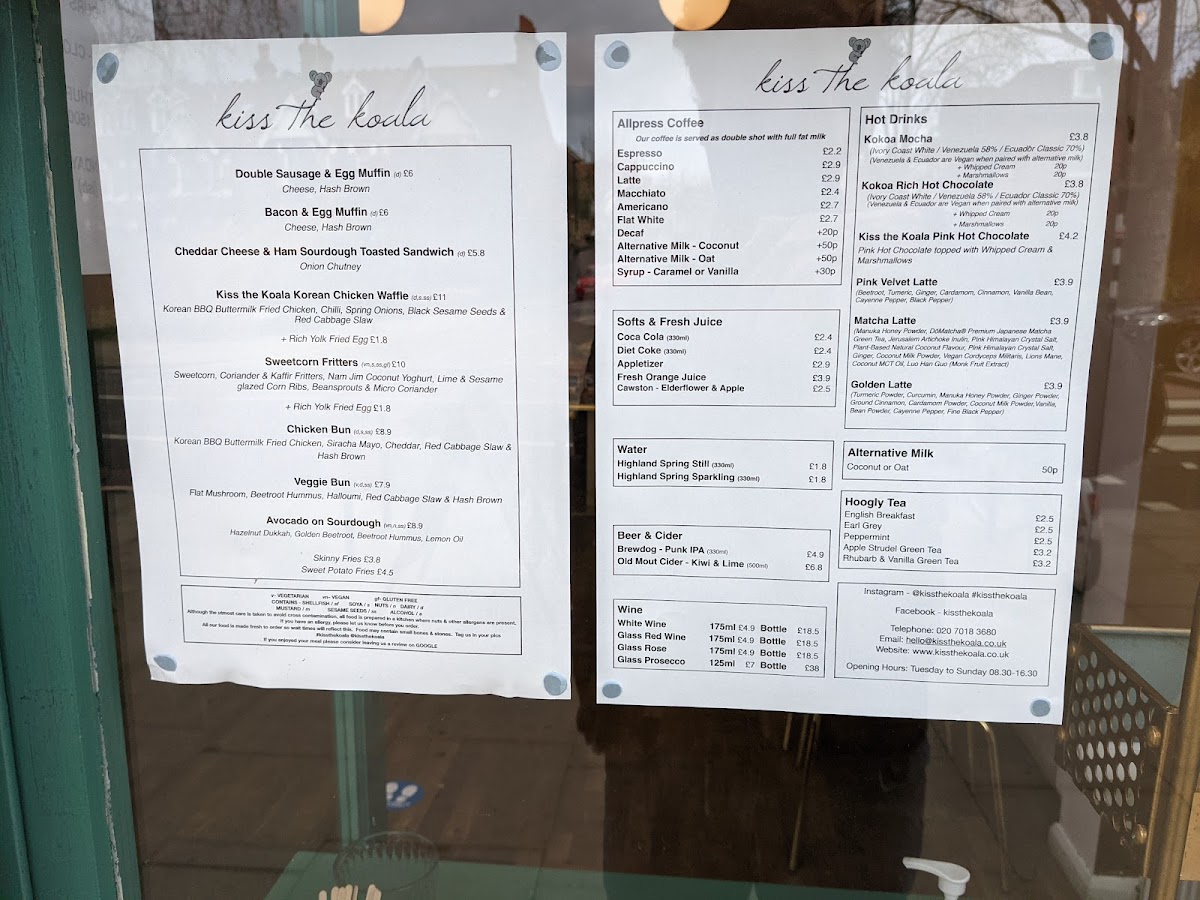 kiss The koala
Double Sausage & Egg Muffin (d) £6
Cheese, Hash Brown
Bacon & Egg Muffin (d) £6
Cheese, Hash Brown
Cheddar Cheese & Ham Sourdough Toasted Sandwich (d) £5.8
Onion Chutney
Kiss the Koala Korean Chicken Waffle (d,s,ss) £11
Korean BBQ Buttermilk Fried Chicken, Chilli, Spring Onions, Black Sesame Seeds &
Red Cabbage Slaw
+ Rich Yolk Fried Egg £1.8
Sweetcorn Fritters (vn,s,ss,gf) £10
Sweetcorn, Coriander & Kaffir Fritters, Nam Jim Coconut Yoghurt, Lime & Sesame
glazed Corn Ribs, Beansprouts & Micro Coriander
+ Rich Yolk Fried Egg £1.8
Chicken Bun (d,s,ss) £8.9
Korean BBQ Buttermilk Fried Chicken, Siracha Mayo, Cheddar, Red Cabbage Slaw &
Hash Brown
Veggie Bun (v,d,ss) £7.9
Flat Mushroom, Beetroot Hummus, Halloumi, Red Cabbage Slaw & Hash Brown
Avocado on Sourdough (vn,n,ss) £8.9
Hazelnut Dukkah, Golden Beetroot, Beetroot Hummus, Lemon Oil
Skinny Fries £3.8
Sweet Potato Fries £4.5
v- VEGETARIAN vn- VEGAN gf- GLUTEN FREE
CONTAINS - SHELLFISH / sf SOYA / s NUTS / n DAIRY / d
MUSTARD / m SESAME SEEDS / ss ALCOHOL / a
Although the utmost care is taken to avoid cross contamination, all food is prepared in a kitchen where nuts & other allergans are present.
If you have an allergy, please let us know before you order.
All our food is made fresh to order so wait times will reflect this. Food may contain small bones & stones. Tag us in your pics
#kissthekoala @kissthekoala
If you enjoyed your meal please consider leaving us a review on GOOGLE
kiss The koala
Allpress Coffee
Our coffee is served as double shot with full fat milk
Espresso £2.2
Cappuccino £2.9
Latte £2.9
Macchiato £2.4
Americano £2.7
Flat White £2.7
Decaf +20p
Alternative Milk - Coconut +50p
Alternative Milk - Oat +50p
Syrup - Caramel or Vanilla +30p
Softs & Fresh Juice
Coca Cola (330ml) £2.4
Diet Coke (330ml) £2.4
Appletizer £2.9
Fresh Orange Juice £3.9
Cawston - Elderflower & Apple £2.5
Water
Highland Spring Still (330ml) £1.8
Highland Spring Sparkling (330ml) £1.8
Beer & Cider
Brewdog - Punk IPA (330ml) £4.9
Old Mout Cider - Kiwi & Lime (500ml) £6.8
Wine
White Wine 175ml £4.9 Bottle £18.5
Glass Red Wine 175ml £4.9 Bottle £18.5
Glass Rose 175ml £4.9 Bottle £18.5
Glass Prosecco 125ml £7 Bottle £38
Hot Drinks
Kokoa Mocha £3.8
(Ivory Coast White / Venezuela 58% / Ecuador Classic 70%)
(Venezuela & Ecuador are Vegan when paired with alternative milk)
+ Whipped Cream 20p
+ Marshmallows 20p
Kokoa Rich Hot Chocolate £3.8
(Ivory Coast White / Venezuela 58% / Ecuador Classic 70%)
(Venezuela & Ecuador are Vegan when paired with alternative milk)
+ Whipped Cream 20p
+ Marshmallows 20p
Kiss the Koala Pink Hot Chocolate £4.2
Pink Hot Chocolate topped with Whipped Cream &
Marshmallows
Pink Velvet Latte £3.9
(Beetroot, Tumeric, Ginger, Cardamom, Cinnamon, Vanilla Bean,
Cayenne Pepper, Black Pepper)
Matcha Latte £3.9
(Manuka Honey Powder, DōMatcha® Premium Japanese Matcha
Green Tea, Jerusalem Artichoke Inulin, Pink Himalayan Crystal Salt,
Plant-Based Natural Coconut Flavour, Pink Himalayan Crystal Salt,
Ginger, Coconut Milk Powder, Vegan Cordyceps Militaris, Lions Mane,
Coconut MCT Oil, Luo Han Guo (Monk Fruit Extract)
Golden Latte £3.9
(Turmeric Powder, Curcumin, Manuka Honey Powder, Ginger Powder,
Ground Cinnamon, Cardamom Powder, Coconut Milk Powder, Vanilla,
Bean Powder, Cayenne Pepper, Fine Black Pepper)
Alternative Milk
Coconut or Oat 50p
Hoogly Tea
English Breakfast £2.5
Earl Grey £2.5
Peppermint £2.5
Apple Strudel Green Tea £3.2
Rhubarb & Vanilla Green Tea £3.2
Instagram - @kissthekoala #kissthekoala
Facebook - kissthekoala
Telephone: 020 7018 3680
Email: hello@kissthekoala.co.uk
Website: www.kissthekoala.co.uk
Opening Hours: Tuesday to Sunday 08.30-16.30